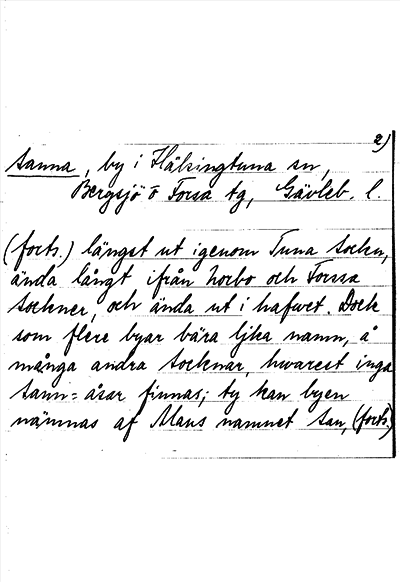 2)
Sanna, by i Hälsingtuna sn,
Bergsjö o Forsa tg, Gävleb. l.
(forts.) längst ut igenom Tuna Sockn,
ända långt ifrån horbo och Forssa
Sockner, och ända ut i hafwet. Dock
som flere byar bära lika namn, å
många andra Socknar, hwarest inga
Sann=åsar finnas; ty kan byen
nämnas af Mans namnet San, (forts.)